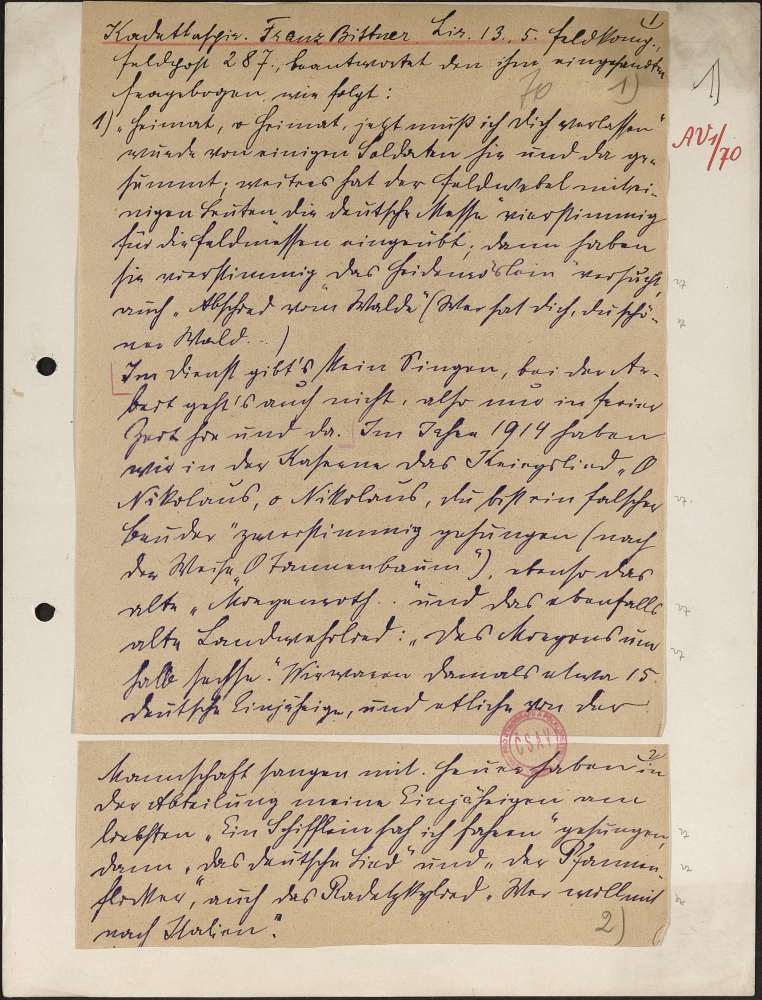 1
Kadettaspir. Franz Bittner Lir. 13., 5. Feldkomp.,
Feldpost 287., beantwortet den ihm eingesandten
Fragebogen wie folgt:
70 1)
1)
AV 1/70
1) „Heimat, o Heimat, jetzt muß ich Dich verlassen"
wurde von einigen Soldaten hie und da ge-
summt; weiters hat der Feldwebel mit ei-
nigen Leuten die deutsche Messe vierstimmig
für die Feldmessen eingeübt; dann haben
sie vierstimmig das Heidenröslein" versucht,
auch „Abschied vom Walde" (Wer hat dich, du schö-
ner Wald...)
Im Dienst gibt's kein Singen, bei der Ar-
beit geht's auch nicht, also nur in freier
Zeit hie und da. Im Jahre 1914 haben
wir in der Kaserne das Kriegslied „O
Nikolaus, o Nikolaus, du bist ein falscher
Bruder" zweistimmig gesungen (nach
der Weise O Tannenbaum"), ebenso das
alte „Morgenroth.." und das ebenfalls
alte Landwehrlied: „Des Morgens um
halb sechse." Wir waren damals etwa 15
deutsche Einjährige, und etliche von der
CSAV
2
Mannschaft sangen mit. Heuer haben in
der Abteilung meine Einjährigen am
liebsten „Ein Schifflein sah ich fahren" gesungen,
dann „das deutsche Lied" und „der Pfannen-
flicker", auch das Radetzkylied „Wer will mit
nach Italien".
2)